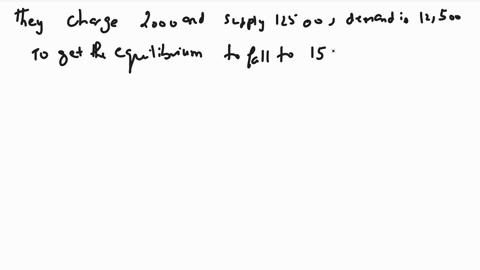 They charge 2000 and supply 12500, demand is 12,500
To get the equilibrium to fall to 15